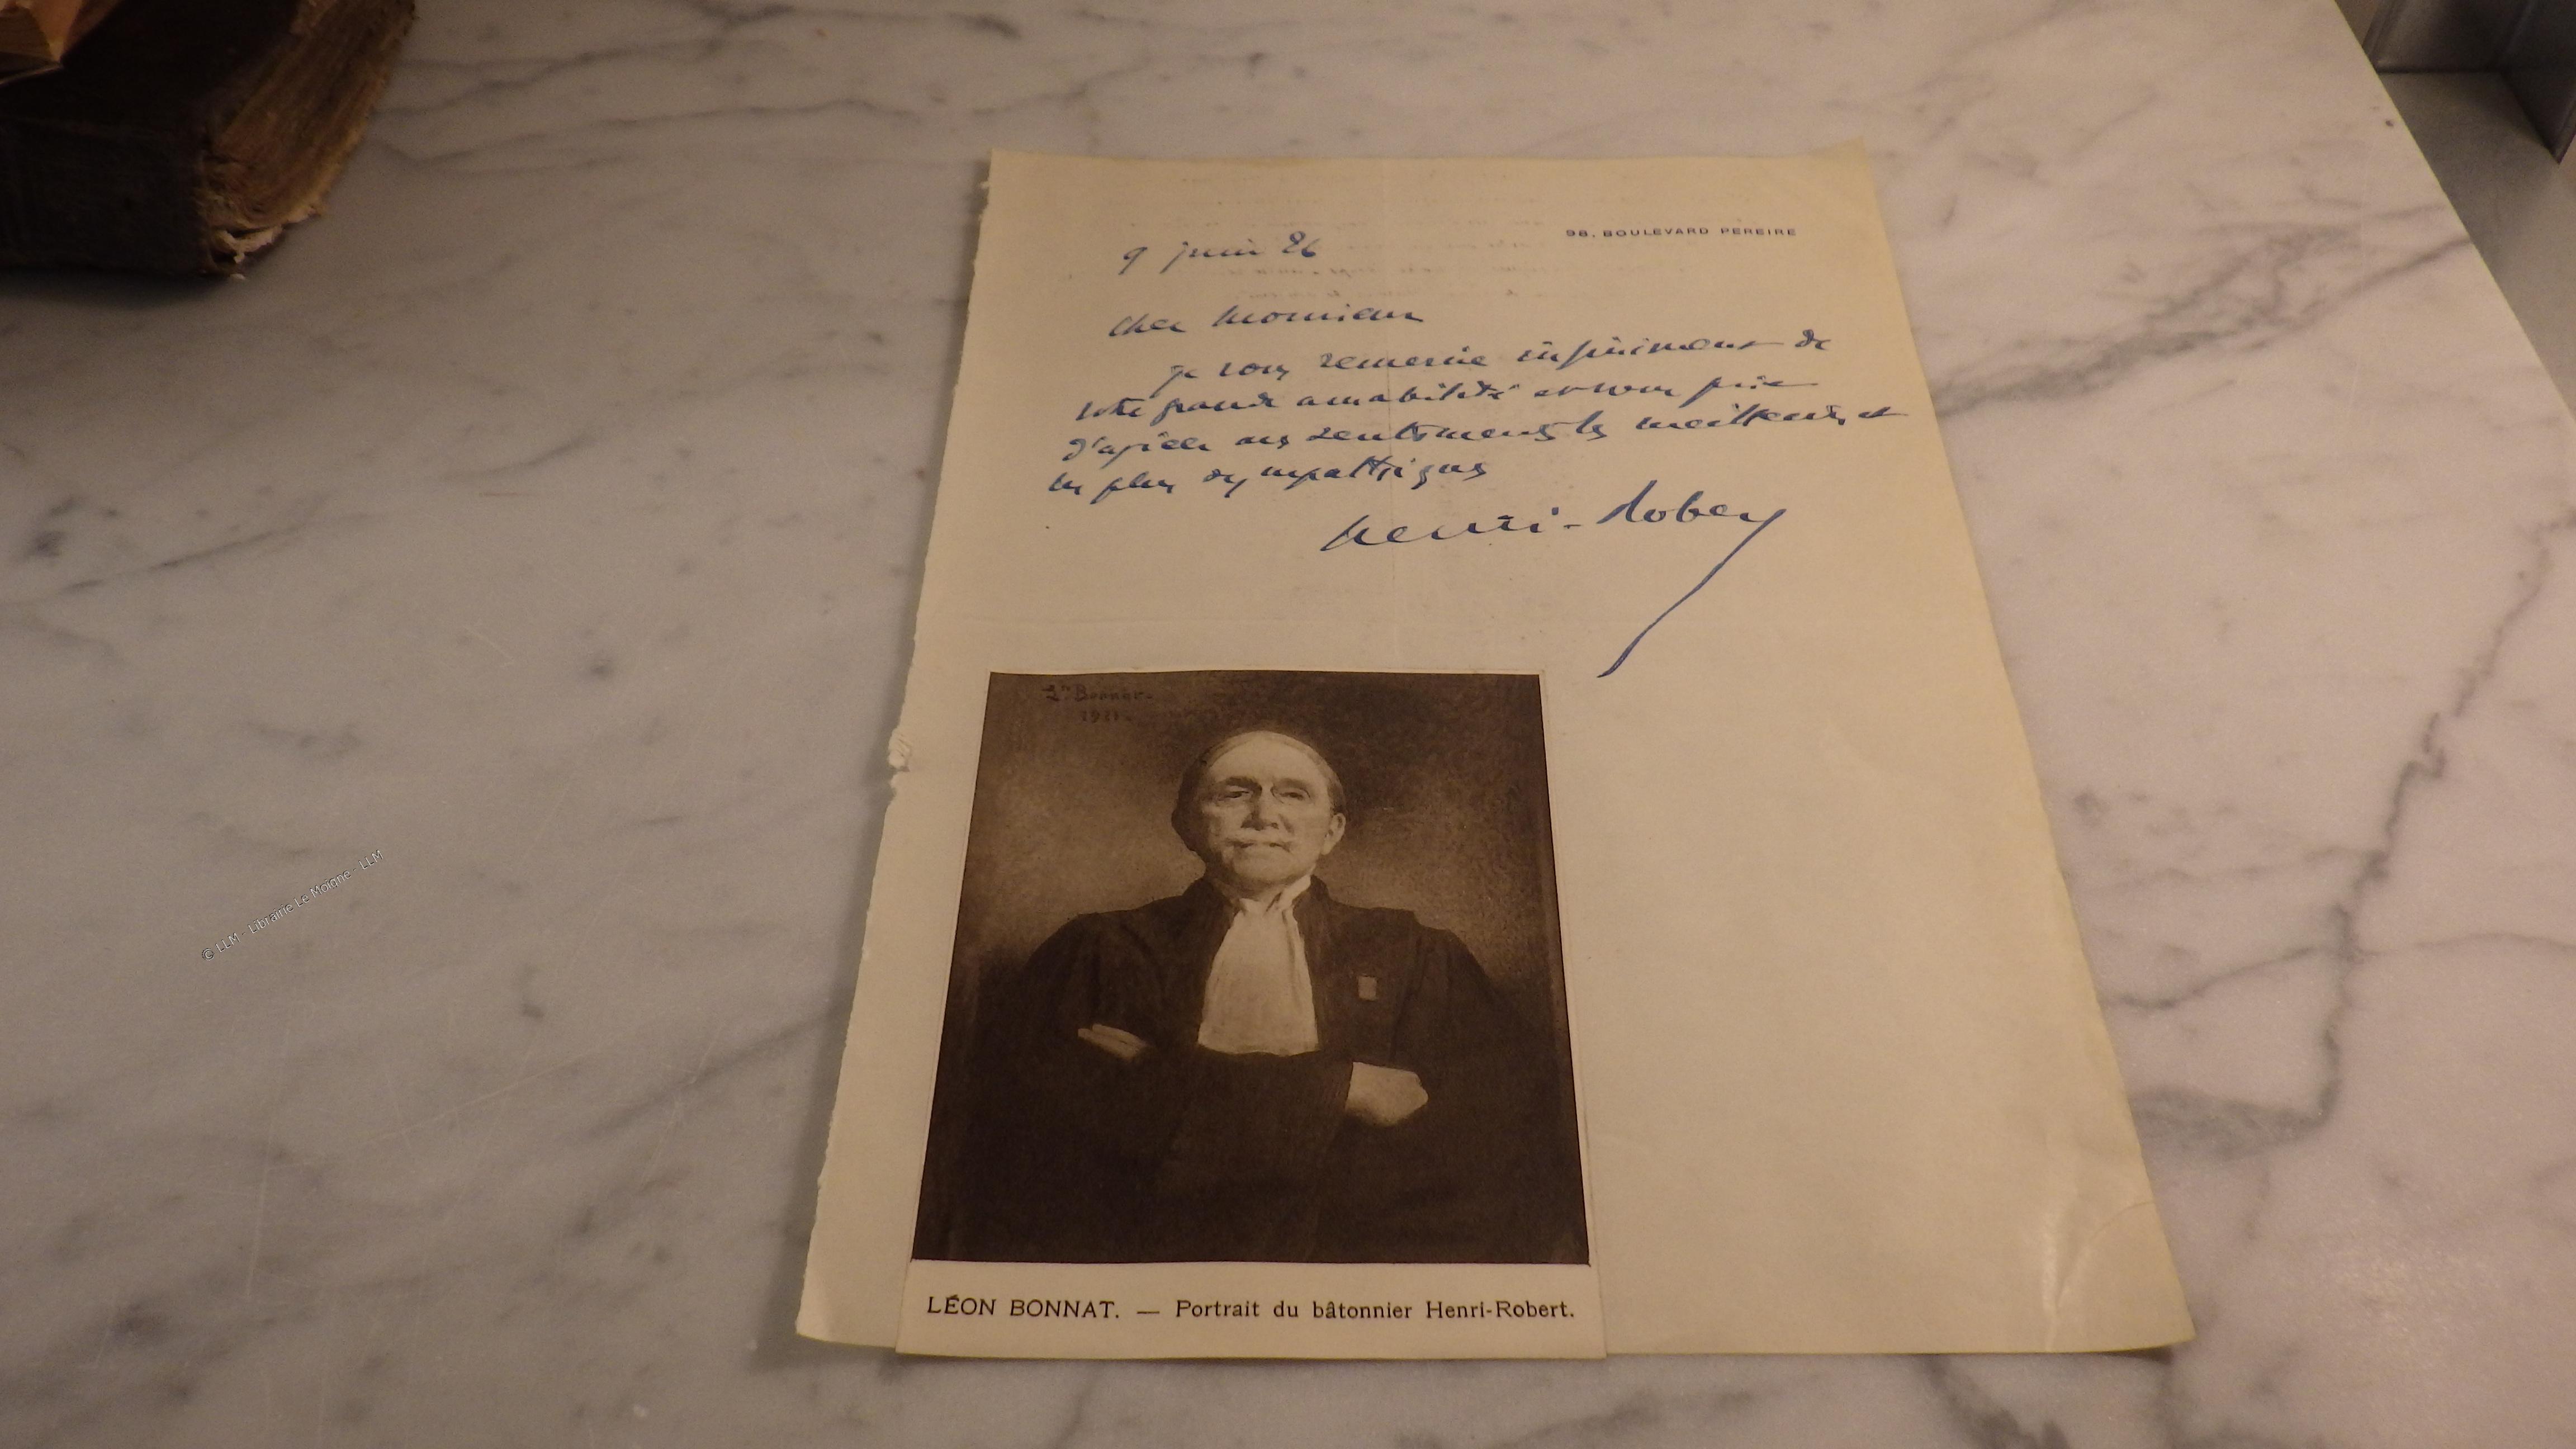 98, BOULEVARD PEREIRE
9 juin 26
cher monsieur
je vous remercie infiniment de
votre grande amabilité et vous prie
d'agréer mes sentiments les meilleurs et
les plus sympathiques
henri-Robert
Ln Bonnat.
1911.
LÉON BONNAT. — Portrait du bâtonnier Henri-Robert.
© LLM - Librairie Le Moigne - LLM